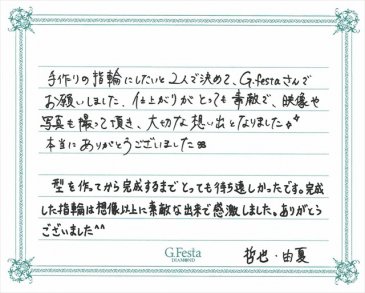 手作りの指輪にしたいと2人で決めて、G.festaさんで
お願いしました。仕上がりがとっても素敵で、映像や
写真も撮って頂き、大切な想い出となりました✨
本当にありがとうございました∞
型を作ってから完成するまでとっても待ち遠しかったです。完成
した指輪は想像以上に素敵な出来で感激しました。ありがとう
ございました^^
G.Festa
DIAMOND
哲也・由夏